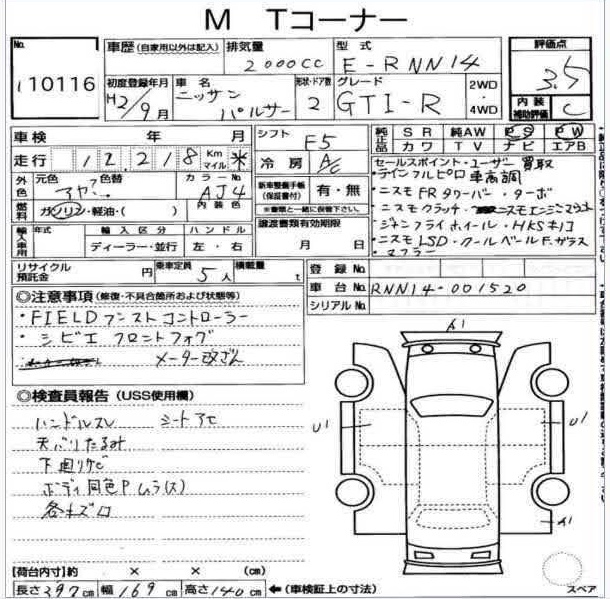 M Tコーナー
No.
10116
車歴 (自家用以外は記入)
排気量
2000CC
型式
E-RNN14
評価点
3.5
内装
補助評価
C
初度登録年月
H2/9月
車名
ニッサン
パルサー
形状・ドア数
2
グレード
GTI-R
2WD
・
4WD
車検 年 月
シフト
F5
純正品
SR 純AW PS PW
カワ TV ナビ エアB
走行 1 2 2 1 8 Km マイル *
冷房
A/C
セールスポイント・ユーザー買取
・テインフルピロ車高調
・ニスモFRタワーバー・ターボ
・ニスモクラッチ・ニスモエンジンマウント
・HKSキノコ
・ニスモLSD・クールベールF.ガラス
マフラー
外色
元色 色替
カラーNo.
AJ4
燃料
ガソリン・軽油・( )
内装色
新車整備手帳
(保証書付)
有・無
※書類と一緒に保管下さい。
輸入車用
年式
輸入区分
ハンドル
ディーラー・並行
左・右
譲渡書類有効期限
月 日
リサイクル
預託金
円
乗車定員
5人
積載量
t
登録No.
車台No.
RNN14-001520
シリアルNo.
◎注意事項 (修復・不具合箇所および状態等)
・FIELD ブーストコントローラー
・シビエ フロントフォグ
メーター改ざん
◎検査員報告 (USS使用欄)
ハンドルスレ シートアセ
天バリたるみ
下回りサビ
ボディ同色Pムラ(ス)
各キズ凹
A1
U1
U1
A1
スペア
【荷台内寸】約 × × (cm)
長さ397cm 幅169cm 高さ140cm ←(車検証上の寸法)